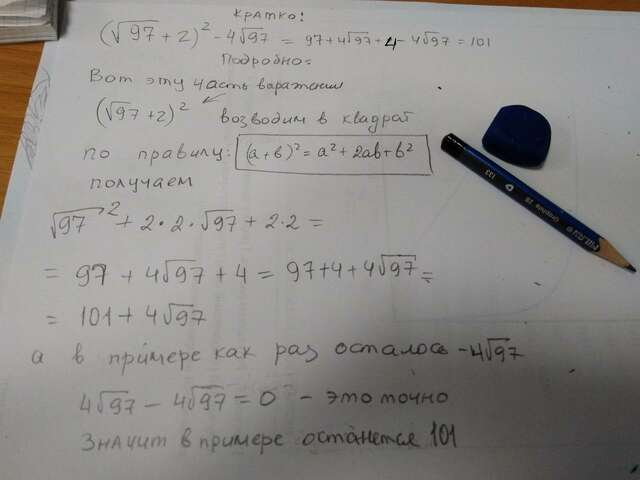 Кратко:
(√97 + 2)² - 4√97 = 97+4√97+4- 4√97 = 101
Подробно:
Вот эту часть выражения
(√97 +2)² возводим в квадрат
по правилу: (a+b)² = a² + 2ab + b²
получаем
√97² + 2·2·√97 + 2·2 =
= 97 + 4√97 + 4 = 97+4 + 4√97 =
= 101 + 4√97
а в примере как раз осталось -4√97
4√97 - 4√97 = 0 - это точно
Значит в примере останется 101